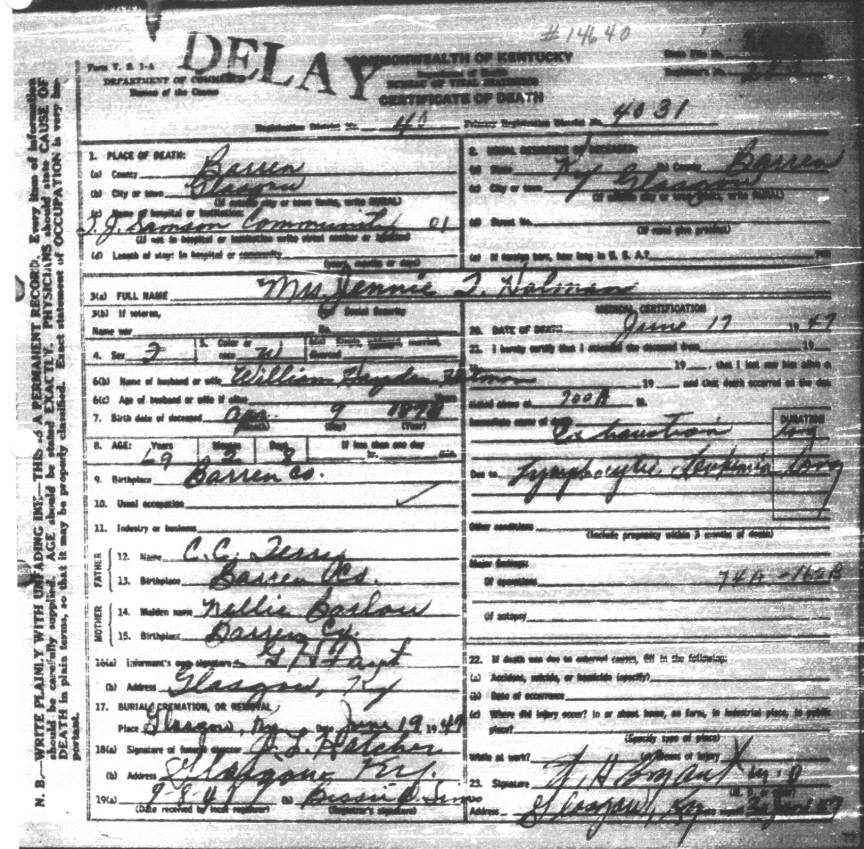 # 14640
DELAY
Form V. S. 1-A
COMMONWEALTH OF KENTUCKY
DEPARTMENT OF COMMERCE
Bureau of the Census
BUREAU OF VITAL STATISTICS
CERTIFICATE OF DEATH
Registration District No. 40 Primary Registration District No. 4031
N. B.—WRITE PLAINLY WITH UNFADING INK—THIS IS A PERMANENT RECORD. Every item of information
should be carefully supplied. AGE should be stated EXACTLY. PHYSICIANS should state CAUSE OF
DEATH in plain terms, so that it may be properly classified. Exact statement of OCCUPATION is very im-
portant.
1. PLACE OF DEATH:
(a) County Barren
(b) City or town Glasgow
(If outside city or town limits, write RURAL)
(c) Name of hospital or institution:
T. J. Samson Community 01
(If not in hospital or institution write street number or location)
(d) Length of stay: in hospital or community
(years, months or days)
2. USUAL RESIDENCE OF DECEASED:
(a) State Ky (b) County Barren
(c) City or town Glasgow
(If outside city or town limits, write RURAL)
(d) Street No.
(If rural give precinct)
(e) If foreign born, how long in U. S. A.?
3(a) FULL NAME Mrs Jennie T. Holman
3(b) If veteran,
Name war
Social Security
No.
4. Sex F
5. Color or
race W
6(a) Single, widowed, married,
divorced
6(b) Name of husband or wife William Hayden
6(c) Age of husband or wife if alive years
7. Birth date of deceased Apr. 9
(Month) (Day) (Year)
8. AGE: Years Months Days If less than one day
69 2 8 hr. min.
9. Birthplace Barren Co.
10. Usual occupation
11. Industry or business
FATHER
12. Name C. C. Terry
13. Birthplace Barren Co.
MOTHER
14. Maiden name Nellie Barlow
15. Birthplace Barren Co.
16(a) Informant's own signature
(b) Address Glasgow, Ky
17. BURIAL, CREMATION, OR REMOVAL
Place Glasgow, Ky Date June 19, 1947
18(a) Signature of funeral director Hatcher
(b) Address Glasgow Ky.
19(a) (b)
(Date received by local registrar) (Registrar's signature)
MEDICAL CERTIFICATION
20. DATE OF DEATH: June 17 1947
21. I hereby certify that I attended the deceased from 19
19 , that I last saw him alive o
19 , and that death occurred on the date
stated above at 700 A M.
Immediate cause of death Exhaustion
DURATION
Due to Lymphocytic Leukemia Long
Other conditions
(Include pregnancy within 3 months of death)
Major findings:
Of operations 74A - 162B
Of autopsy
22. If death was due to external causes, fill in the following:
(a) Accident, suicide, or homicide (specify)
(b) Date of occurrence
(c) Where did injury occur? in or about home, on farm, in industrial place, in public
place?
(Specify type of place)
While at work? Means of injury
23. Signature H Bryant M.D
Address Glasgow, Ky